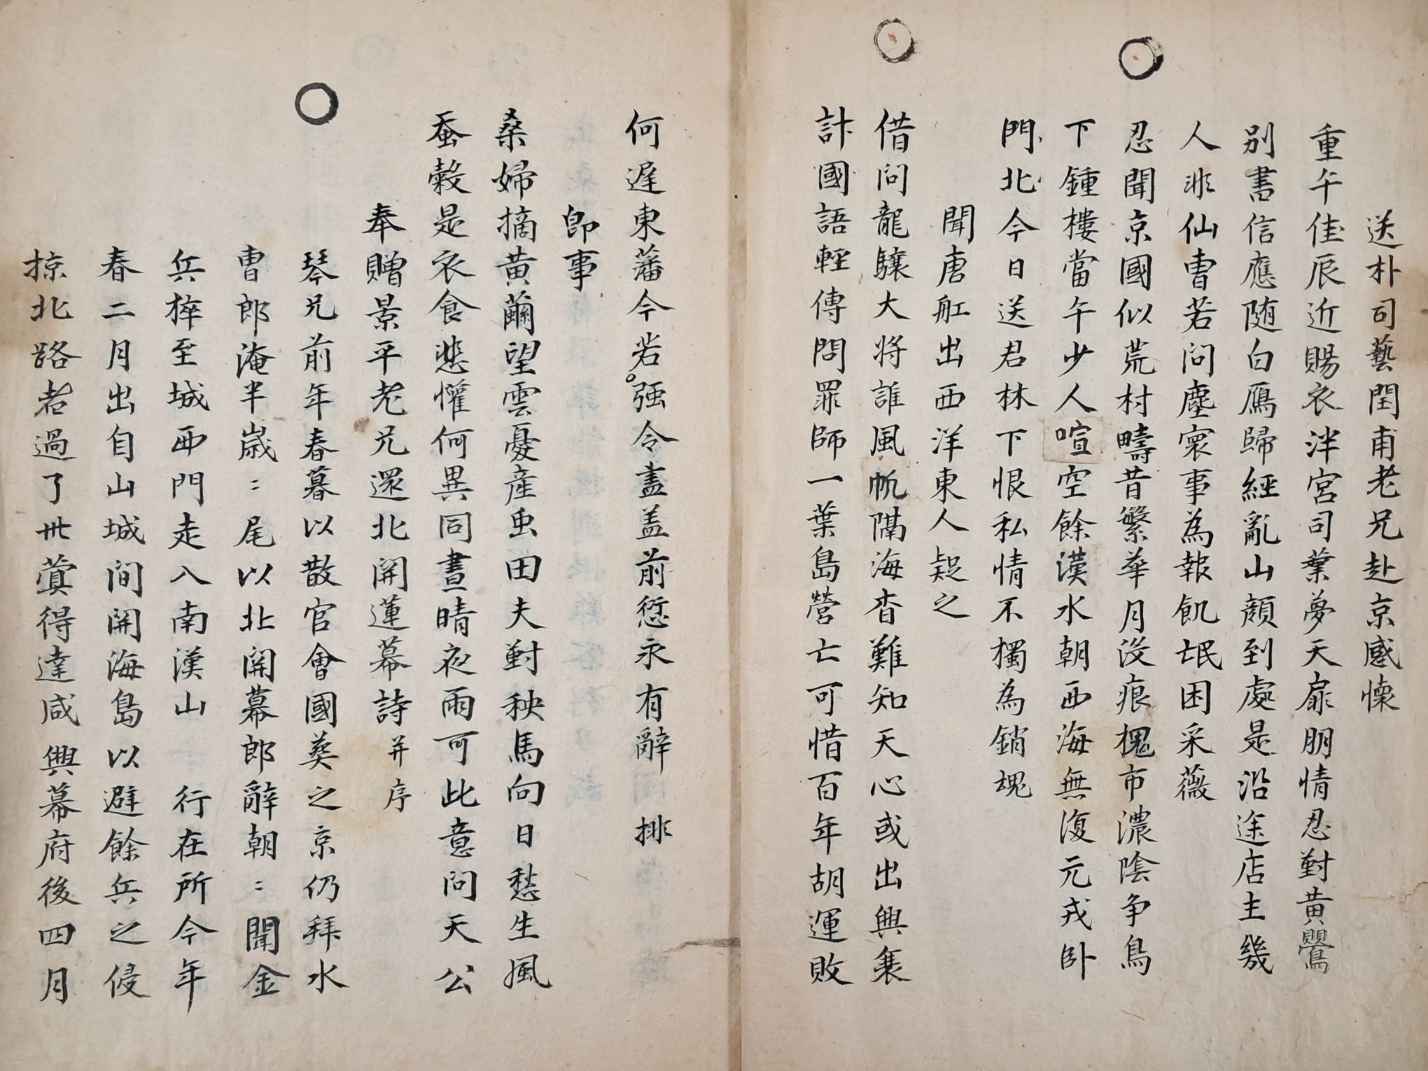 送朴司藝閏甫老兄赴京感懷
重午佳辰近賜衣泮宮司業夢天扉朋情忍對黃鸎
別書信應随白鴈歸經亂山顔到處是沿途店主幾
人非仙曺若問塵寰事為報飢氓困采薇
忍聞京國似荒村疇昔繁華月沒痕槐市濃陰争鳥
下鍾樓當午少人喧空餘漢水朝西海無復元戎卧
門北今日送君林下恨私情不獨為銷魂
聞唐舡出西洋東人疑之
借问龍驤大将誰風帆隔海杳難知天心或出興衰
計國語輕傳問罪師一葉島營亡可惜百年胡運敗
何遅東藩今若强令盡盖前愆永有辭 排
即事
桑婦摘黃繭望雲憂産虫田夫對秧馬向日愁生風
蚕穀是衣食悲懽何異同晝晴夜雨可此意问天公
奉贈景平老兄還北関蓮幕詩并序
琴兄前年春暮以散官會國葬之京仍拜水
曺郎淹半歲〻尾以北関幕郎辭朝〻聞金
兵猝至城西門走入南漢山 行在所今年
春二月出自山城间関海島以避餘兵之侵
掠北路者過了卅蓂得達咸興幕府後四月